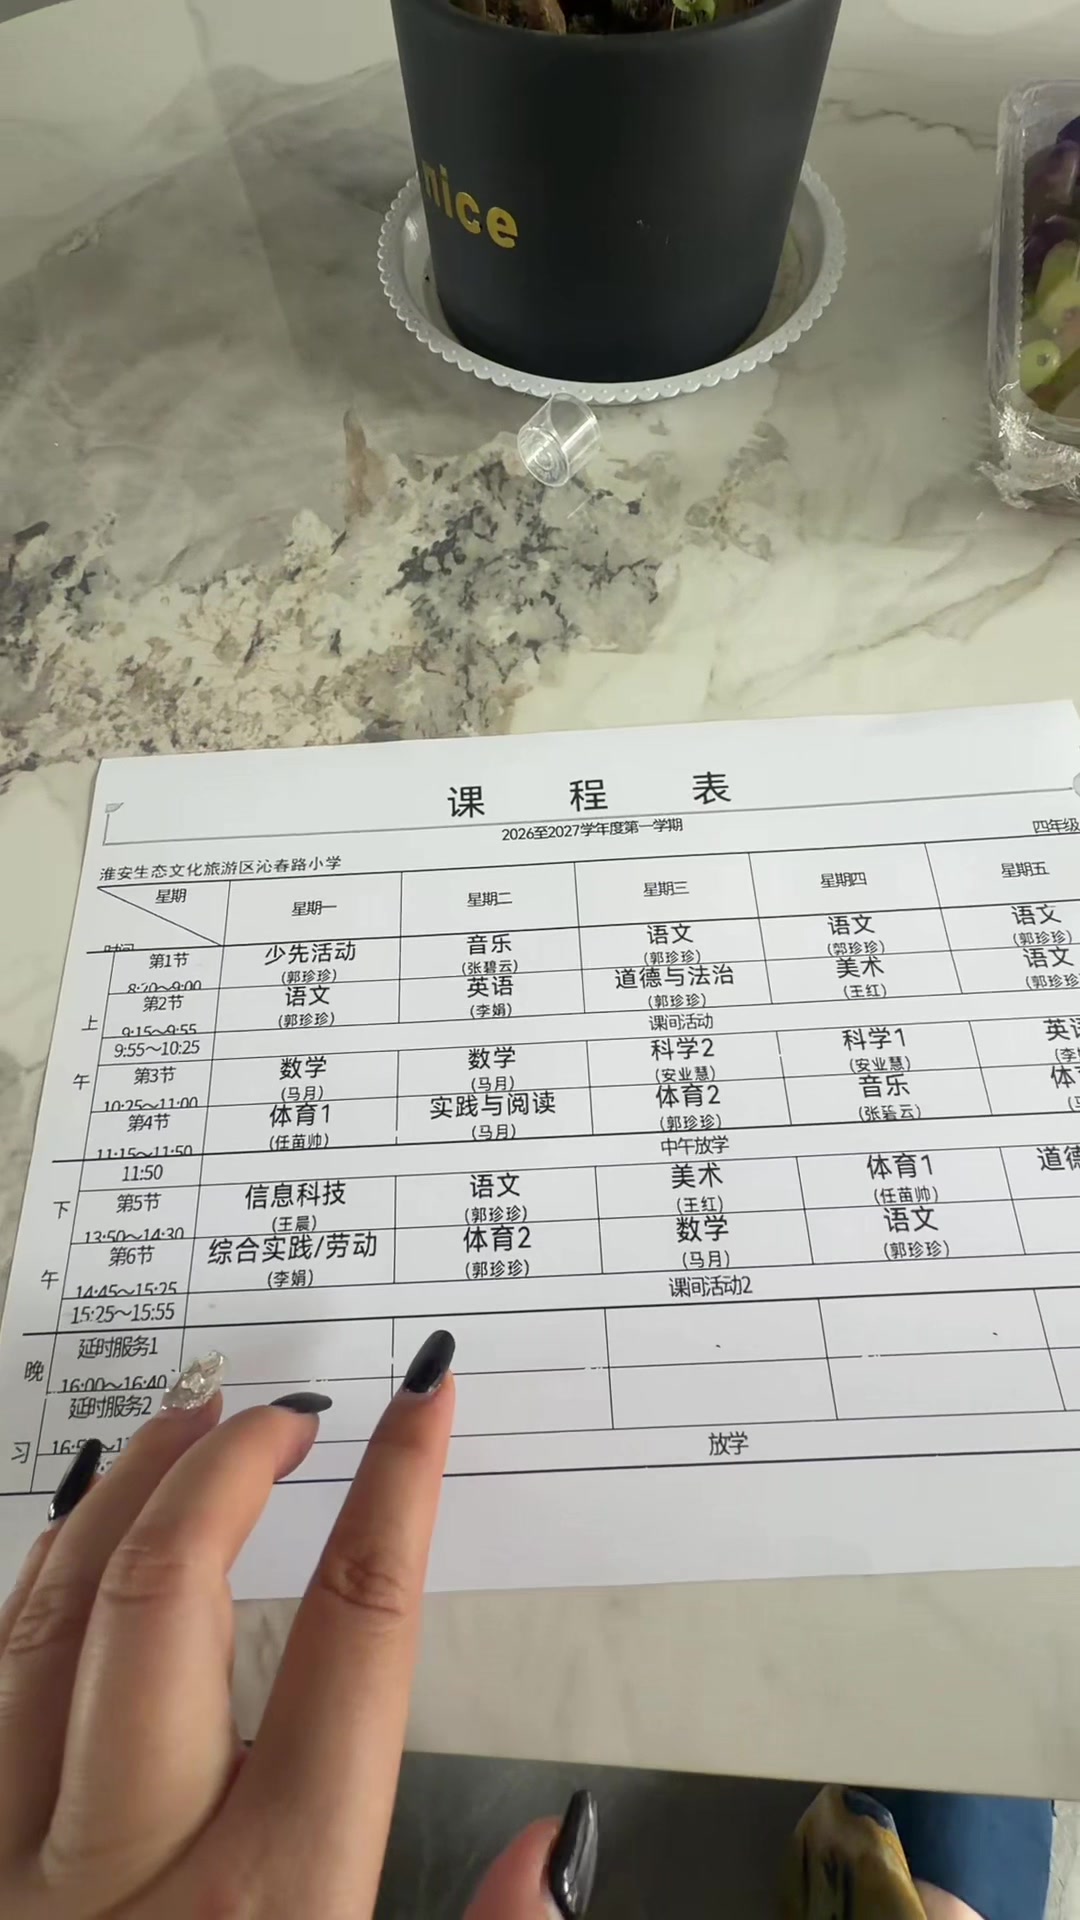 nice
课 程 表
2026至2027学年度第一学期
淮安生态文化旅游区沁春路小学 四年级
星期 星期一 星期二 星期三 星期四 星期五
时间
上午
第1节 少先活动 音乐 语文 语文 语文
8:20~9:00 (郭珍珍) (张碧云) (郭珍珍) (郭珍珍) (郭珍珍)
第2节 语文 英语 道德与法治 美术 语文
9:15~9:55 (郭珍珍) (李娟) (郭珍珍) (王红) (郭珍珍
9:55~10:25 课间活动
第3节 数学 数学 科学2 科学1
10:25~11:00 (马月) (马月) (安业慧) (安业慧)
第4节 体育1 实践与阅读 体育2 音乐
11:15~11:50 (任苗帅) (马月) (郭珍珍) (张碧云)
11:50 中午放学
下午
第5节 信息科技 语文 美术 体育1 道德
13:50~14:30 (王晨) (郭珍珍) (王红) (任苗帅)
第6节 综合实践/劳动 体育2 数学 语文
14:45~15:25 (李娟) (郭珍珍) (马月) (郭珍珍)
15:25~15:55 课间活动2
晚习
延时服务1
16:00~16:40
延时服务2
放学